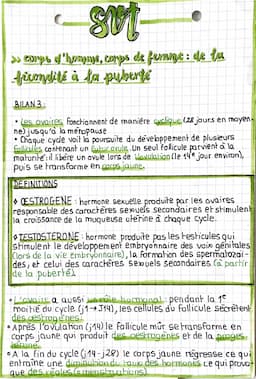 SVT
>> corps d'homme, corps de femme : de la
fécondité à la puberté
BILAN 3 :
• Les ovaires fonctionnent de manière cyclique (28 jours en moyen-
ne) jusqu'à la ménopause
• Chaque cycle voit la poursuite du développement de plusieurs
follicules contenant un futur ovule. Un seul follicule parvient à la
maturité : il libère un ovule lors de l'ovulation (le 14e jour environ),
puis se transforme en corps jaune.
DÉFINITIONS
♦ OESTROGENE : hormone sexuelle produite par les ovaires
responsable des caractères sexuels secondaires et stimulent
la croissance de la muqueuse utérine à chaque cycle.
♦ TESTOSTERONE : hormone produite pas les testicules qui
stimulent le développement embryonnaire des voin génitales
(lors de la vie embryonnaire), la formation des spermatozoï-
des, et celui des caractères sexuels secondaires (à partir
de la puberté).
• L'ovaire a aussi un rôle hormonal : pendant la 1e
moitié du cycle (j1→J14), les cellules du follicule sécrètent
des oestrogènes.
• Après l'ovulation (j14) le follicule mûr se transforme en
corps jaune qui produit des oestrogènes et de la proges-
térone.
• A la fin du cycle (j14-j28) le corps jaune régresse ce qui
entraîne une diminution du taux des hormones ce qui provo-
que des règles (menstruations).